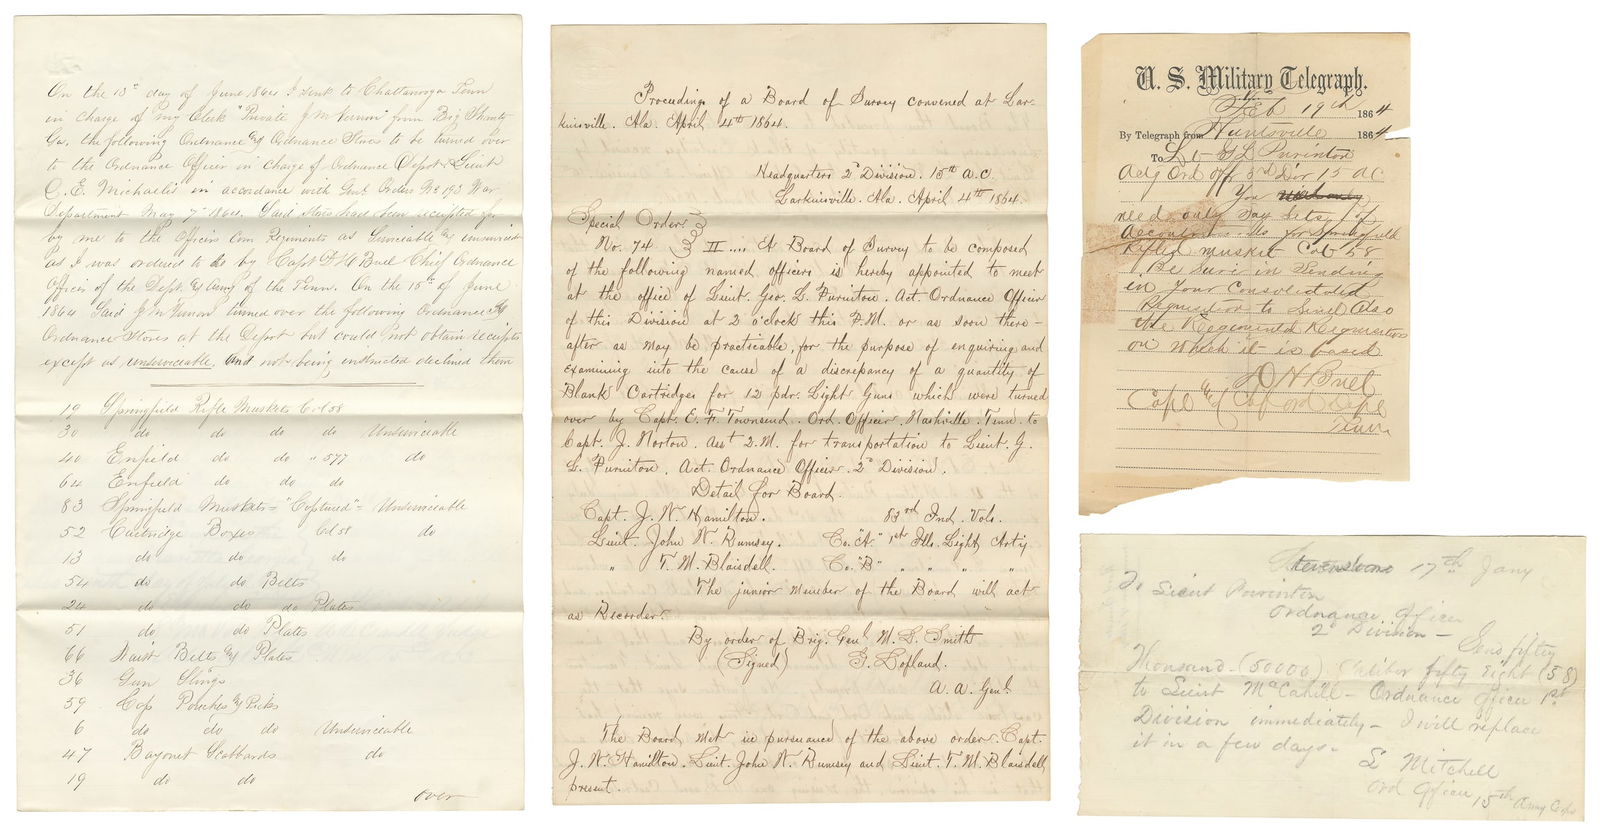 On the 13th day of June 1864 I sent to Chattanooga Tenn
in charge of my Clerk Private J M Vernon from Big Shanty
Ga, the following Ordnance & Ordnance Stores to be turned over
to the Ordnance Officer in charge of Ordnance Depot Lieut
O. E. Michaelis in accordance with Genl Orders No 193 War
Department May 7th 1864. Said Stores had been receipted for
by me to the Officers Com Regiments as Serviceable & unserviceable
as I was ordered to do by Capt D H Buel Chief Ordnance
Officer of the Dept & Army of the Tenn. On the 15th of June
1864 Said J M Vernon turned over the following Ordnance &
Ordnance Stores at the Depot but could not obtain receipts
except as unserviceable, and not being instructed declined them
19 Springfield Rifle Muskets Cal 58
30 do do do do Unserviceable
40 Enfield do do " 577 do
64 Enfield do do do
83 Springfield Muskets = "Captured" = Unserviceable
52 Cartridge Boxes Cal 58 do
13 do do do
54 do do Belts
24 do do do Plates
51 do do Plates
66 Waist Belts & Plates
36 Gun Slings
59 Cap Pouches & Picks
6 do do do Unserviceable
47 Bayonet Scabbards do
19 do do
over
Proceedings of a Board of Survey convened at Lar-
kinsville. Ala. April 4th 1864.
Headquarters 2d Division. 15th A.C.
Larkinsville. Ala. April 4th 1864.
Special Order.
No. 74 II .... A Board of Survey to be composed
of the following named officers is hereby appointed to meet
at the office of Lieut. Geo. L. Purinton. Act. Ordnance Officer
of this Division at 2 o'clock this P.M. or as soon there-
after as may be practicable, for the purpose of enquiring and
examining into the cause of a discrepancy of a quantity of
Blank Cartridges for 12 pdr. Light Guns which were turned
over by Capt. E. F. Townsend. Ord. Officer. Nashville. Tenn. to
Capt. J. Norton. Asst Q.M. for transportation to Lieut. G.
L. Purinton. Act. Ordnance Officer. 2d Division.
Detail for Board.
Capt. J. W. Hamilton. 83rd Ind. Vols.
Lieut. John W. Rumsey. Co. "A" 1st Ills. Light Arty.
" T. M. Blaisdell. Co. B " " " "
The junior member of the Board will act
as Recorder.
By order of Brig. Genl M. L. Smith
(Signed) G. Lofland.
A. A. Genl.
The Board met in pursuance of the above order. Capt.
J. W. Hamilton. Lieut. John W. Rumsey and Lieut. T. M. Blaisdell
present.
U. S. Military Telegraph.
Feb 19th 1864
By Telegraph from Huntsville 1864
To Lt G L Purinton
Actg Ord Off 2d Div 15 AC
You
need only say sets of
Accoutrements for Springfield
Rifled musket Cal 58
Be Sure in Sending
in Your Consolidated
Requisition to Send Also
the Regimental Requisition
on which it is based
D H Buel
Capt & Ch of Ord Dept
Tenn
Stevensbone 17th Jany
To Lieut Purinton
Ordnance Officer
2d Division -
Send fifty
Thousand - (50000) Caliber fifty Eight (58)
to Lieut McCahill - Ordnance Officer 1st
Division immediately - I will replace
it in a few days -
L Mitchell
Ord Officer 15th Army Corps